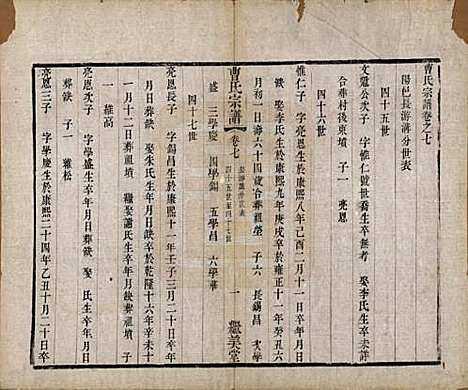 曹氏宗譜卷之七
陽邑長游溝分世表
四十五世
文魁公次子 字惟仁號世喬生卒無考 娶李氏生卒未詳
合華村後東墳 子一 亮恩
四十六世
惟仁子 字亮恩生於康熙八年己酉二月十一日卒年
缺 娶李氏生於康熙九年庚戌卒於雍正十一年癸丑六
月初一日壽六十四歲合葬祖塋 子六 長錫昌 次學
盛 三學慶 四學錫 五學昌 六學華
曹氏宗譜
卷七
四十五世至四十七世
一
繼美堂
四十七世
亮恩長子 字錫昌生於康熙十一年壬子三月二十日卒年
月日缺 娶朱氏生年月日缺卒於乾隆十六年辛未十
一月十二日葬祖墳 繼娶謝氏生卒年月日葬祖墳
子一 維高
亮恩次子 字學盛生卒年月葬缺 娶 氏生卒年月日
葬缺 子一 維松
亮恩三子 字學慶生於康熙三十四年乙丑十月二十日卒